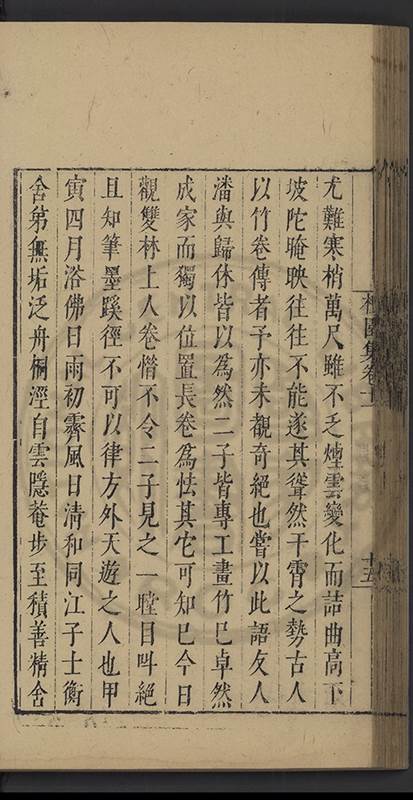 尤難寒梢萬尺雖不乏煙雲變化而詰曲高下
坡陀晻映往往不能遂其聳然干霄之勢古人
以竹卷傳者予亦未觀奇絕也嘗以此語友人
潘與歸休皆以為然二子皆專工畫竹巳卓然
成家而獨以位置長卷為怯其它可知巳今日
觀雙林上人卷惜不令二子見之一瞠目叫絕
且知筆墨蹊徑不可以律方外天遊之人也甲
寅四月浴佛日雨初霽風日清和同江子士衡
舍弟無垢泛舟桐涇自雲隱菴步至積善精舍